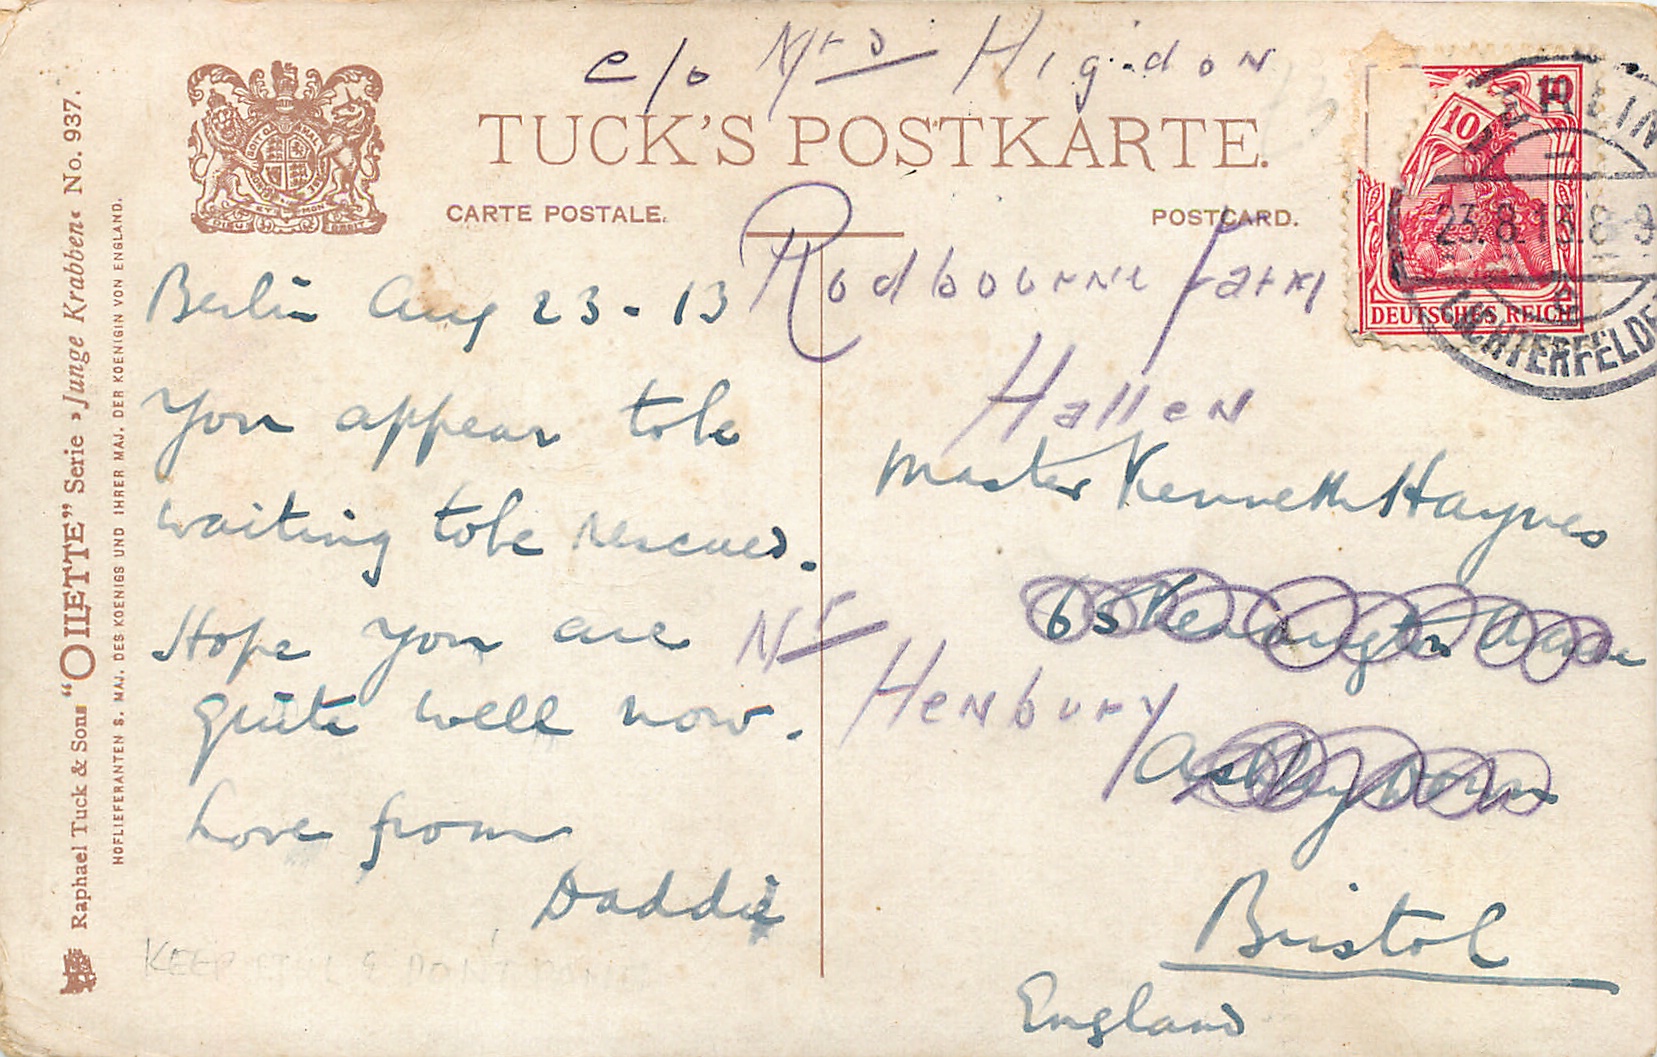 c/o Mrs Higidon
TUCK'S POSTKARTE.
CARTE POSTALE.
POSTCARD.
Raphael Tuck & Sons "OILETTE" Serie »Junge Krabben« No. 937.
HOFLIEFERANTEN S. MAJ. DES KOENIGS UND IHRER MAJ. DER KOENIGIN VON ENGLAND.
DIEU ET MON DROIT
Berlin Aug 23 - 13
You appear to be
waiting to be rescued.
Hope you are
quite well now.
Love from
Daddie
KEEP STILL & DON'T
Rodbourne farm
Hallen
Master Kenneth Haynes
65 Kensington
Nr Henbury
Ashley Down
Bristol
England
10 10
DEUTSCHES REICH
BERLIN
23.8.13.8-9
e
LICHTERFELDE